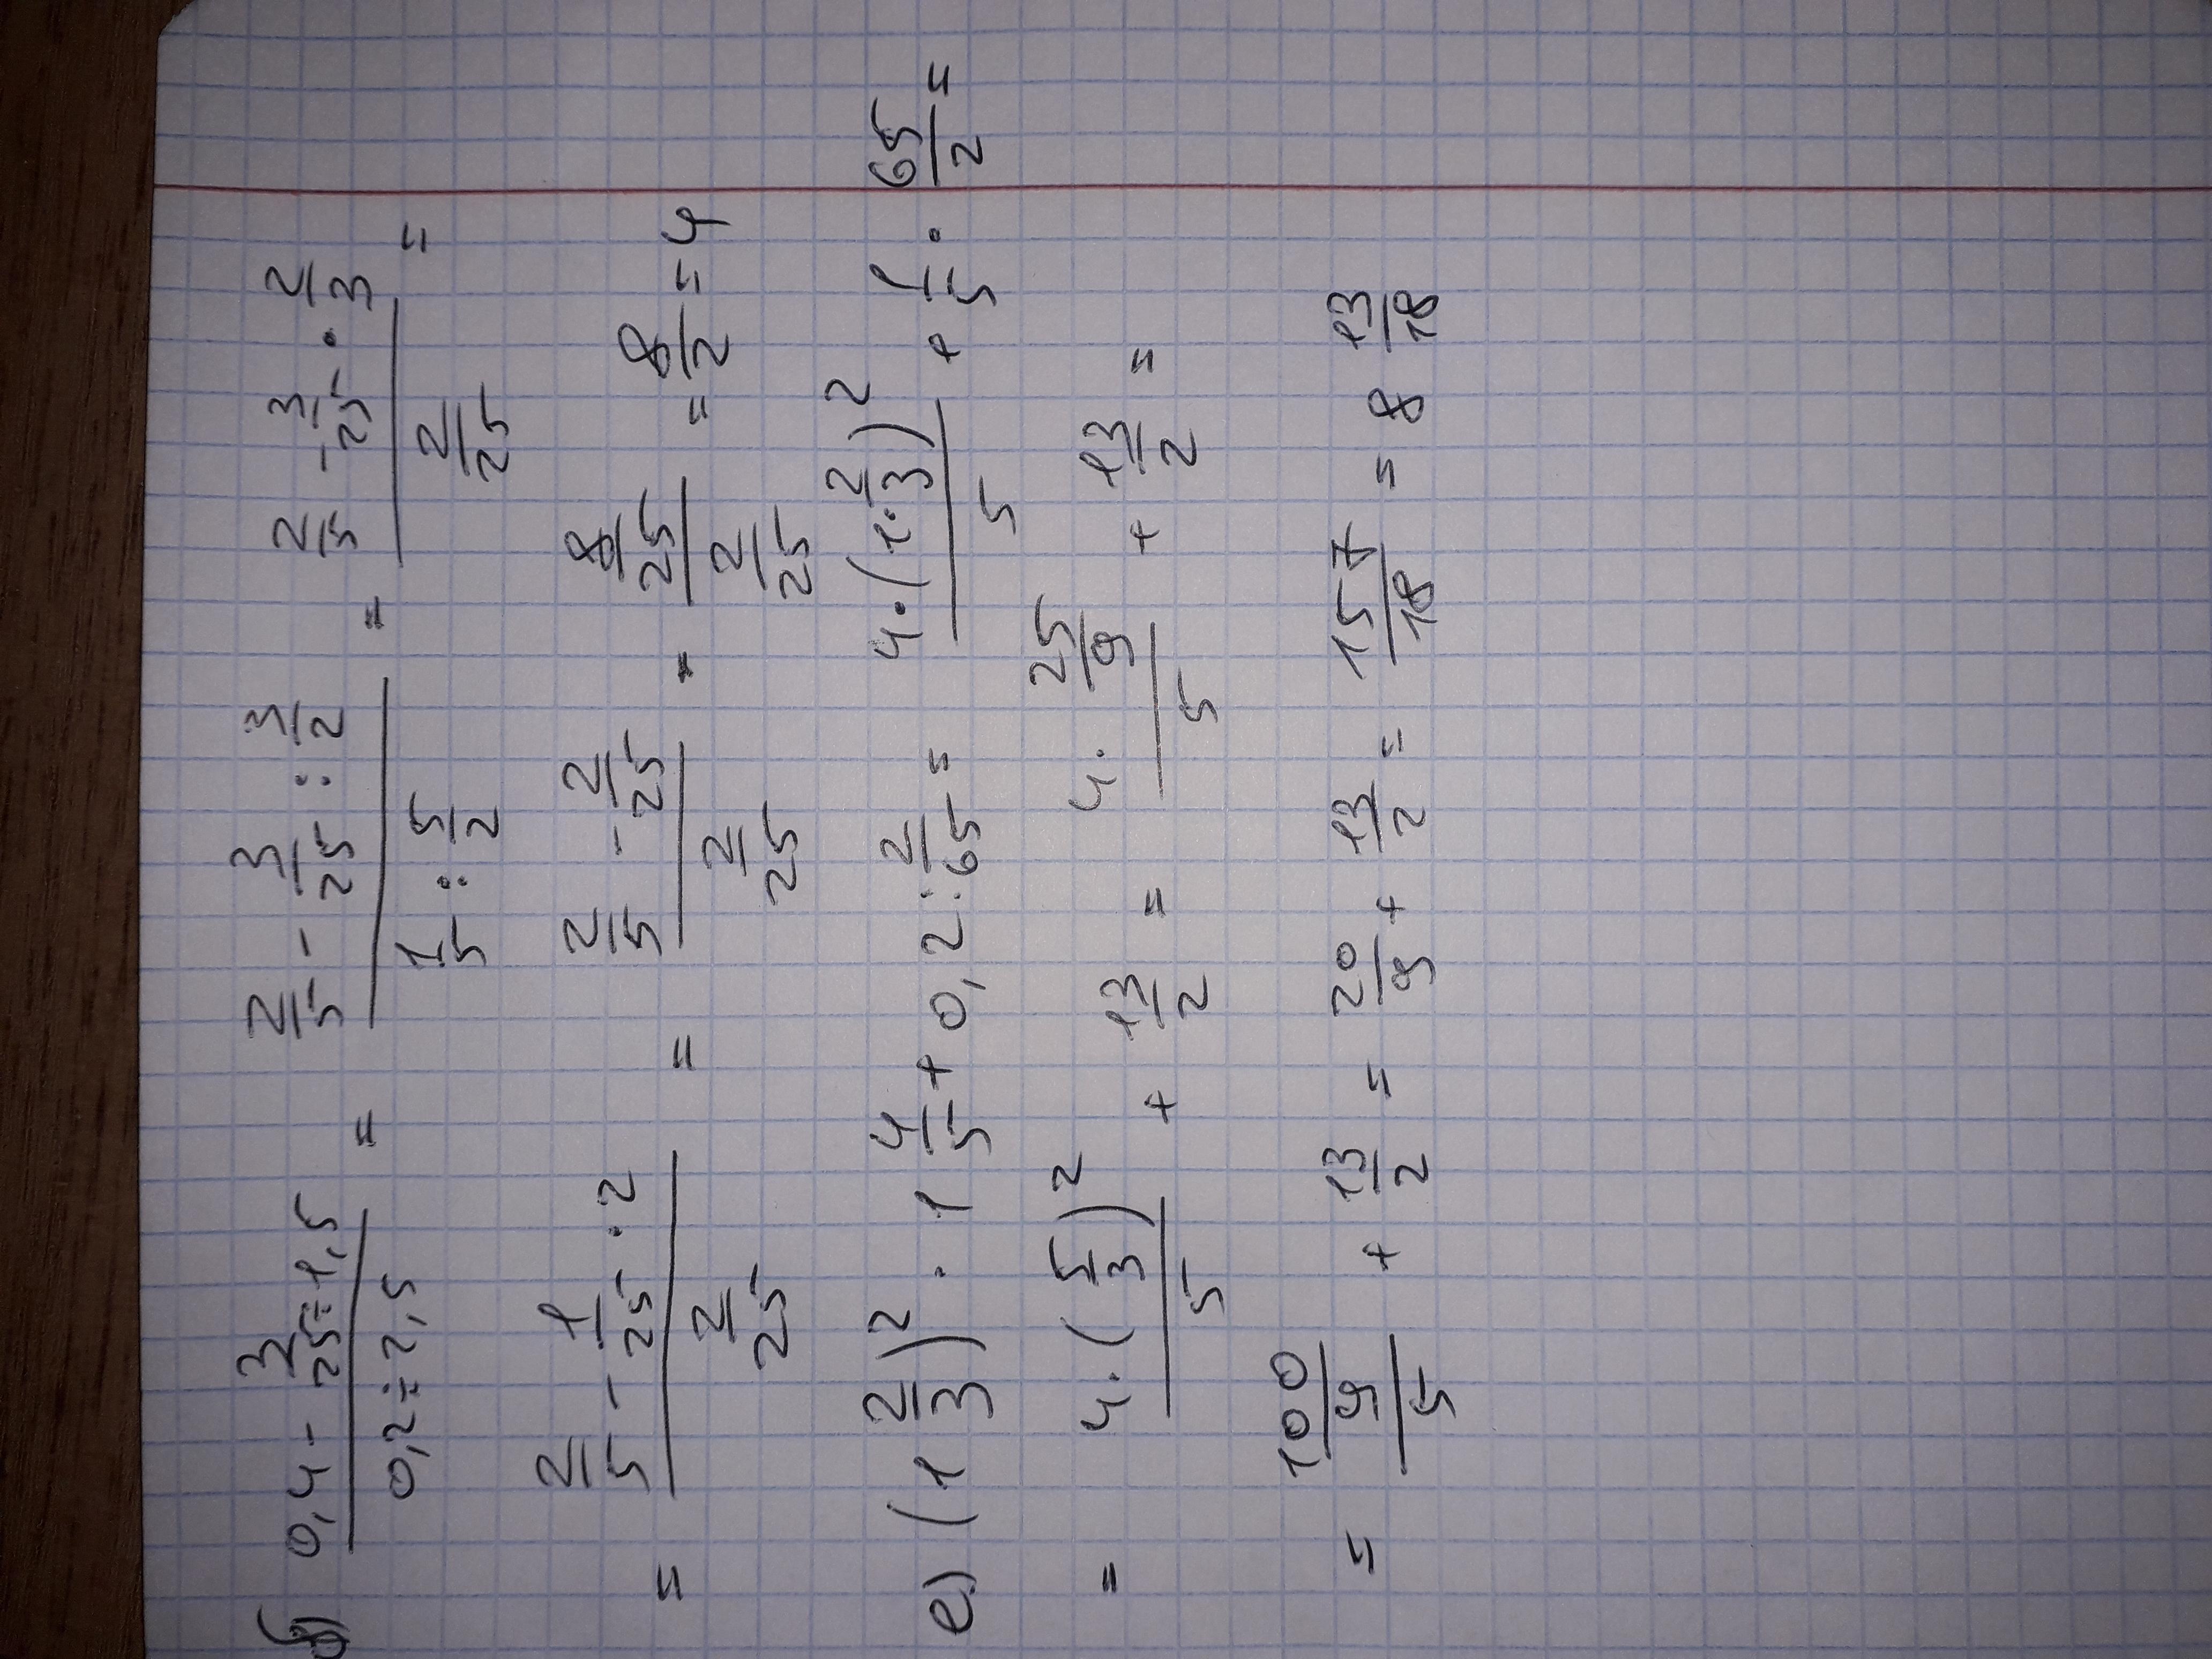 б) (0,4 - 3/25 : 1,5)/(0,2 : 2,5) = (2/5 - 3/25 : 3/2)/(1/5 : 5/2) = (2/5 - 3/25 · 2/3)/(2/25) =
= (2/5 - 1/25 · 2)/(2/25) = (2/5 - 2/25)/(2/25) = (8/25)/(2/25) = 8/2 = 4
е) (1 2/3)² · 1 4/5 + 0,2 : 2/65 = (4 · (1 · 2/3)²)/5 + 1/5 · 65/2 =
= (4 · (5/3)²)/5 + 13/2 = (4 · 25/9)/5 + 13/2 =
= (100/9)/5 + 13/2 = 20/9 + 13/2 = 157/18 = 8 13/18